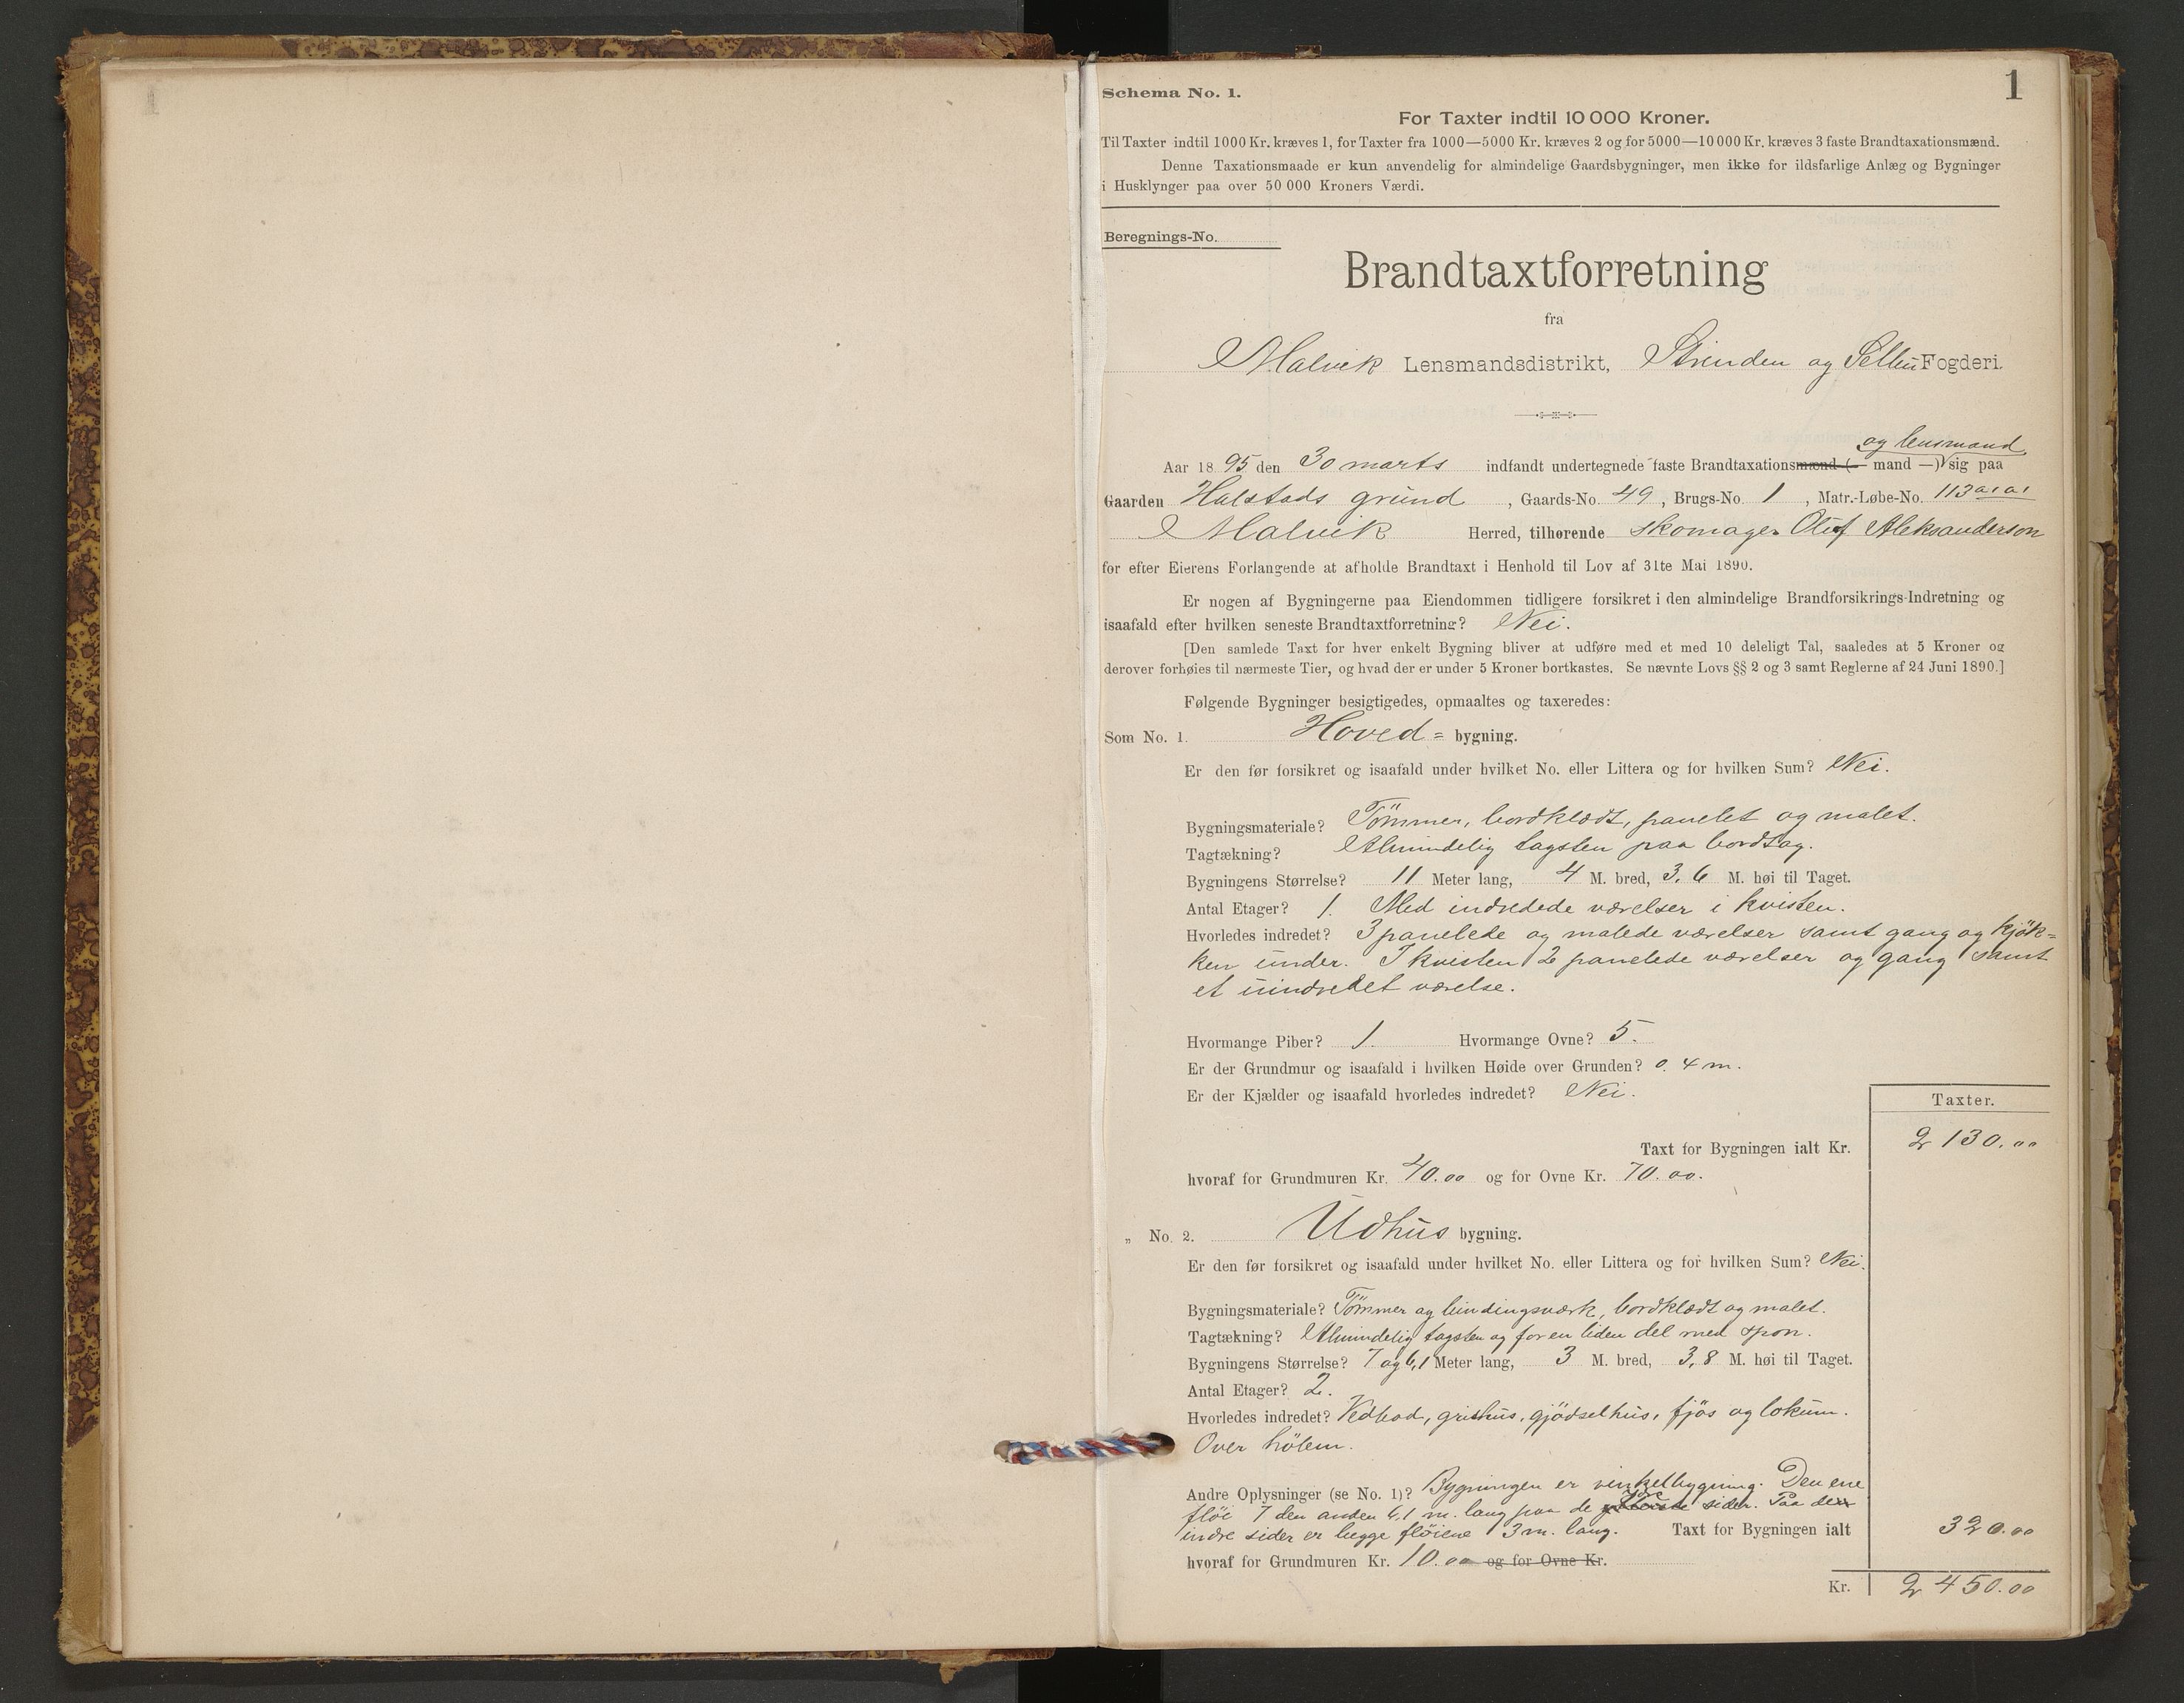 1
Schema No. 1.
For Taxter indtil 10 000 Kroner.
Til Taxter indtil 1000 Kr. kræves 1, for Taxter fra 1000—5000 Kr. kræves 2 og for 5000—10 000 Kr. kræves 3 faste Brandtaxationsmænd.
Denne Taxationsmaade er kun anvendelig for almindelige Gaardsbygninger, men ikke for ildsfarlige Anlæg og Bygninger
i Husklynger paa over 50 000 Kroners Værdi.
Beregnings-No.
Brandtaxtforretning
fra
Malvik Lensmandsdistrikt, Strinden og Selbu Fogderi.
og lensmand
Aar 1895 den 30 marts indfandt undertegnede faste Brandtaxationsmænd (— mand —) sig paa
Gaarden Halstads grund, Gaards-No. 49, Brugs-No. 1, Matr.-Løbe-No. 113 a1 a1
Malvik Herred, tilhørende skomager Oluf Aleksanderson
for efter Eierens Forlangende at afholde Brandtaxt i Henhold til Lov af 31te Mai 1890.
Er nogen af Bygningerne paa Eiendommen tidligere forsikret i den almindelige Brandforsikrings-Indretning og
isaafald efter hvilken seneste Brandtaxtforretning? Nei.
[Den samlede Taxt for hver enkelt Bygning bliver at udføre med et med 10 deleligt Tal, saaledes at 5 Kroner og
derover forhøies til nærmeste Tier, og hvad der er under 5 Kroner bortkastes. Se nævnte Lovs §§ 2 og 3 samt Reglerne af 24 Juni 1890.]
Følgende Bygninger besigtigedes, opmaaltes og taxeredes:
Som No. 1. Hoved= bygning.
Er den før forsikret og isaafald under hvilket No. eller Littera og for hvilken Sum? Nei.
Bygningsmateriale? Tömmer, bordklædt, panelet og malet.
Tagtækning? Almindelig tagsten paa bordtag.
Bygningens Størrelse? 11 Meter lang, 4 M. bred, 3,6 M. høi til Taget.
Antal Etager? 1. Med indredede værelser i kvisten.
Hvorledes indredet? 3 panelede og malede værelser samt gang og kjök=
ken under. I kvisten 2 panelede værelser og gang samt
et uindredet værelse.
Hvormange Piber? 1. Hvormange Ovne? 5.
Er der Grundmur og isaafald i hvilken Høide over Grunden? 0.4 m.
Er der Kjælder og isaafald hvorledes indredet? Nei.
Taxter.
Taxt for Bygningen ialt Kr. 2 130.00
hvoraf for Grundmuren Kr. 40.00 og for Ovne Kr. 70.00.
„ No. 2. Udhus bygning.
Er den før forsikret og isaafald under hvilket No. eller Littera og for hvilken Sum? Nei.
Bygningsmateriale? Tömmer og bindingsværk, bordklædt og malet.
Tagtækning? Almindelig tagsten og for en liden del med spon.
Bygningens Størrelse? 7 og 6,1 Meter lang, 3 M. bred, 3,8 M. høi til Taget.
Antal Etager? 2.
Hvorledes indredet? Vedbod, grishus, gjödselhus, fjös og lokum.
Over hölem.
Andre Oplysninger (se No. 1)? Bygningen er vinkelbygning. Den ene
flöi 7 den anden 6,1 m. lang paa de sider. Paa de
indre sider er begge flöiene 3 m. lang. Taxt for Bygningen ialt 320.00
hvoraf for Grundmuren Kr. 10.00 og for Ovne Kr.
Kr. 2 450.00